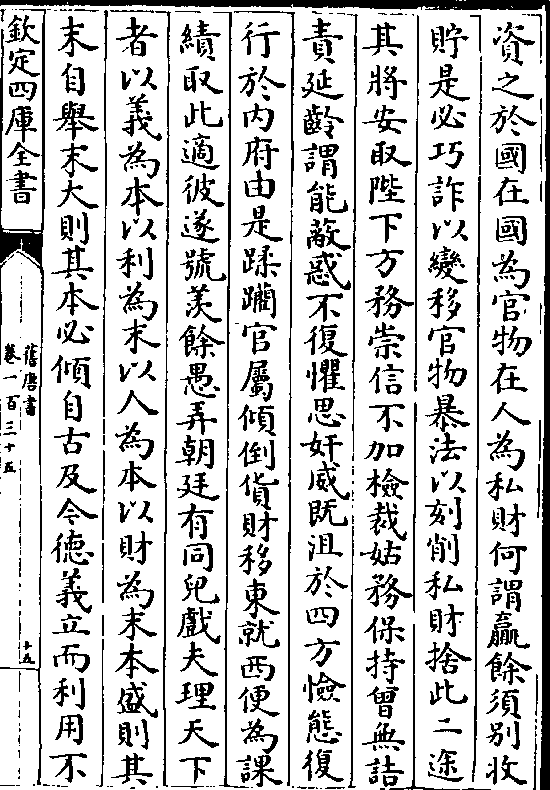 資之於國在國為官物在人為私財何謂贏餘須別收
貯是必巧詐以變移官物暴法以刻削私財捨此二途
其將安取陛下方務崇信不加檢裁姑務保持曾無詰
責延齡謂能蔽惑不復懼思奸威既沮於四方憸態復
行於內府由是蹂躪官屬傾倒貨財移東就西便為課
績取此適彼遂號羡餘愚弄朝廷有同兒戲夫理天下
者以義為本以利為末以人為本以財為末本盛則其
末自舉末大則其本必傾自古及今德義立而利用不
欽定四庫全書
舊唐書
卷一百三十五
十五